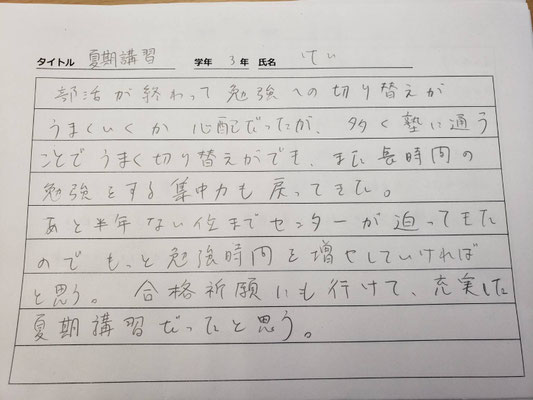 タイトル 夏期講習 学年 3年 氏名 けい
部活が終わって勉強への切り替えが
うまくいくか心配だったが、多く塾に通う
ことでうまく切り替えができ、また長時間の
勉強をする集中力も戻ってきた。
あと半年ない位までセンターが迫ってきた
のでもっと勉強時間を増やしていければ
と思う。 合格祈願にも行けて、充実した
夏期講習だったと思う。